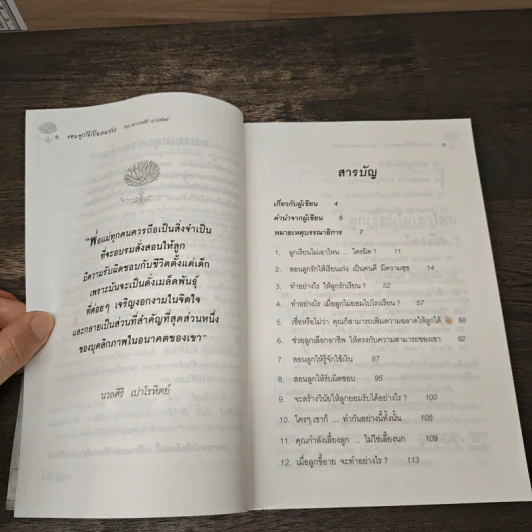 8 สอนลูกให้เป็นคนเก่ง
"พ่อแม่ทุกคนควรถือเป็นสิ่งจำเป็น
ที่จะอบรมสั่งสอนให้ลูก
มีความรับผิดชอบกับชีวิตตั้งแต่เด็ก
เพราะมันจะเป็นดั่งเมล็ดพันธุ์
ที่ค่อยๆ เจริญงอกงามในจิตใจ
และกลายเป็นส่วนที่สำคัญที่สุดส่วนหนึ่ง
ของบุคลิกภาพในอนาคตของเขา"
นวลศิริ เปาโรหิตย์
สารบัญ
เกี่ยวกับผู้เขียน 4
คำนำจากผู้เขียน 5
หมายเหตุบรรณาธิการ 7
1. ลูกเรียนไม่เอาไหน ... ใครผิด? 11
2. สอนลูกรักให้เรียนเก่ง เป็นคนดี มีความสุข 14
3. ทำอย่างไร ให้ลูกรักเรียน? 52
4. ทำอย่างไร เมื่อลูกไม่ยอมไปโรงเรียน? 57
5. เชื่อหรือไม่ว่า คุณก็สามารถเพิ่มความฉลาดให้ลูกได้ 68
6. ช่วยลูกเลือกอาชีพ ให้ตรงกับความสามารถของเขา 82
7. สอนลูกให้รู้จักใช้เงิน 87
8. สอนลูกให้รับผิดชอบ 95
9. จะสร้างวินัยให้ลูกยอมรับได้อย่างไร? 100
10. ใครๆ เขาก็ ... ทำกันอย่างนี้ทั้งนั้น 105
11. คุณกำลังเลี้ยงลูก ... ไม่ใช่เลี้ยงนก 109
12. เมื่อลูกขี้อาย จะทำอย่างไร? 113